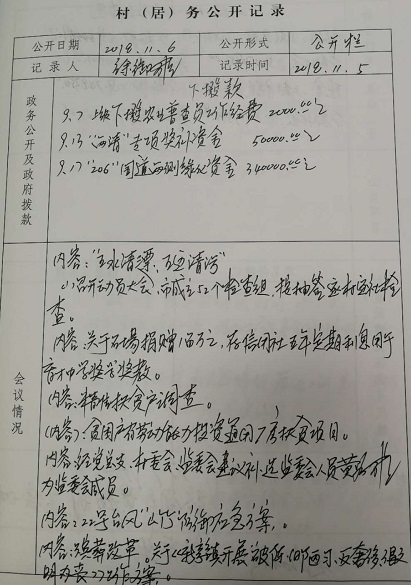 村（居）务公开记录
公开日期 2018.11.6 公开形式 公开栏
记录人 记录时间 2018.11.5
政务公开及政府拨款
下拨款
9.7 上级下拨农业普查员工作经费 2000.00元
9.13 "两清"专项奖补资金 50000.00元
9.17 "206"国道两侧绿化资金 340000.00元
会议情况
内容："全水清漂，全清污"
(1)召开动员大会，市成立52个检查组，按抽签逐村逐社检
查。
内容：关于石场捐赠100万元，存信用社五年定期利息用于
育才中学奖学奖教。
内容：精准扶贫户调查。
内容：贫困户有劳动能力投资通用厂房扶贫项目。
内容：经党总支、村委会、监委会建议补选监委会人员黄
为监委会成员。
内容：22号台风"山竹"防御应急方案。
内容：殡葬改革。关于 镇开展破除 陋习、反奢
明办丧 工作方案。